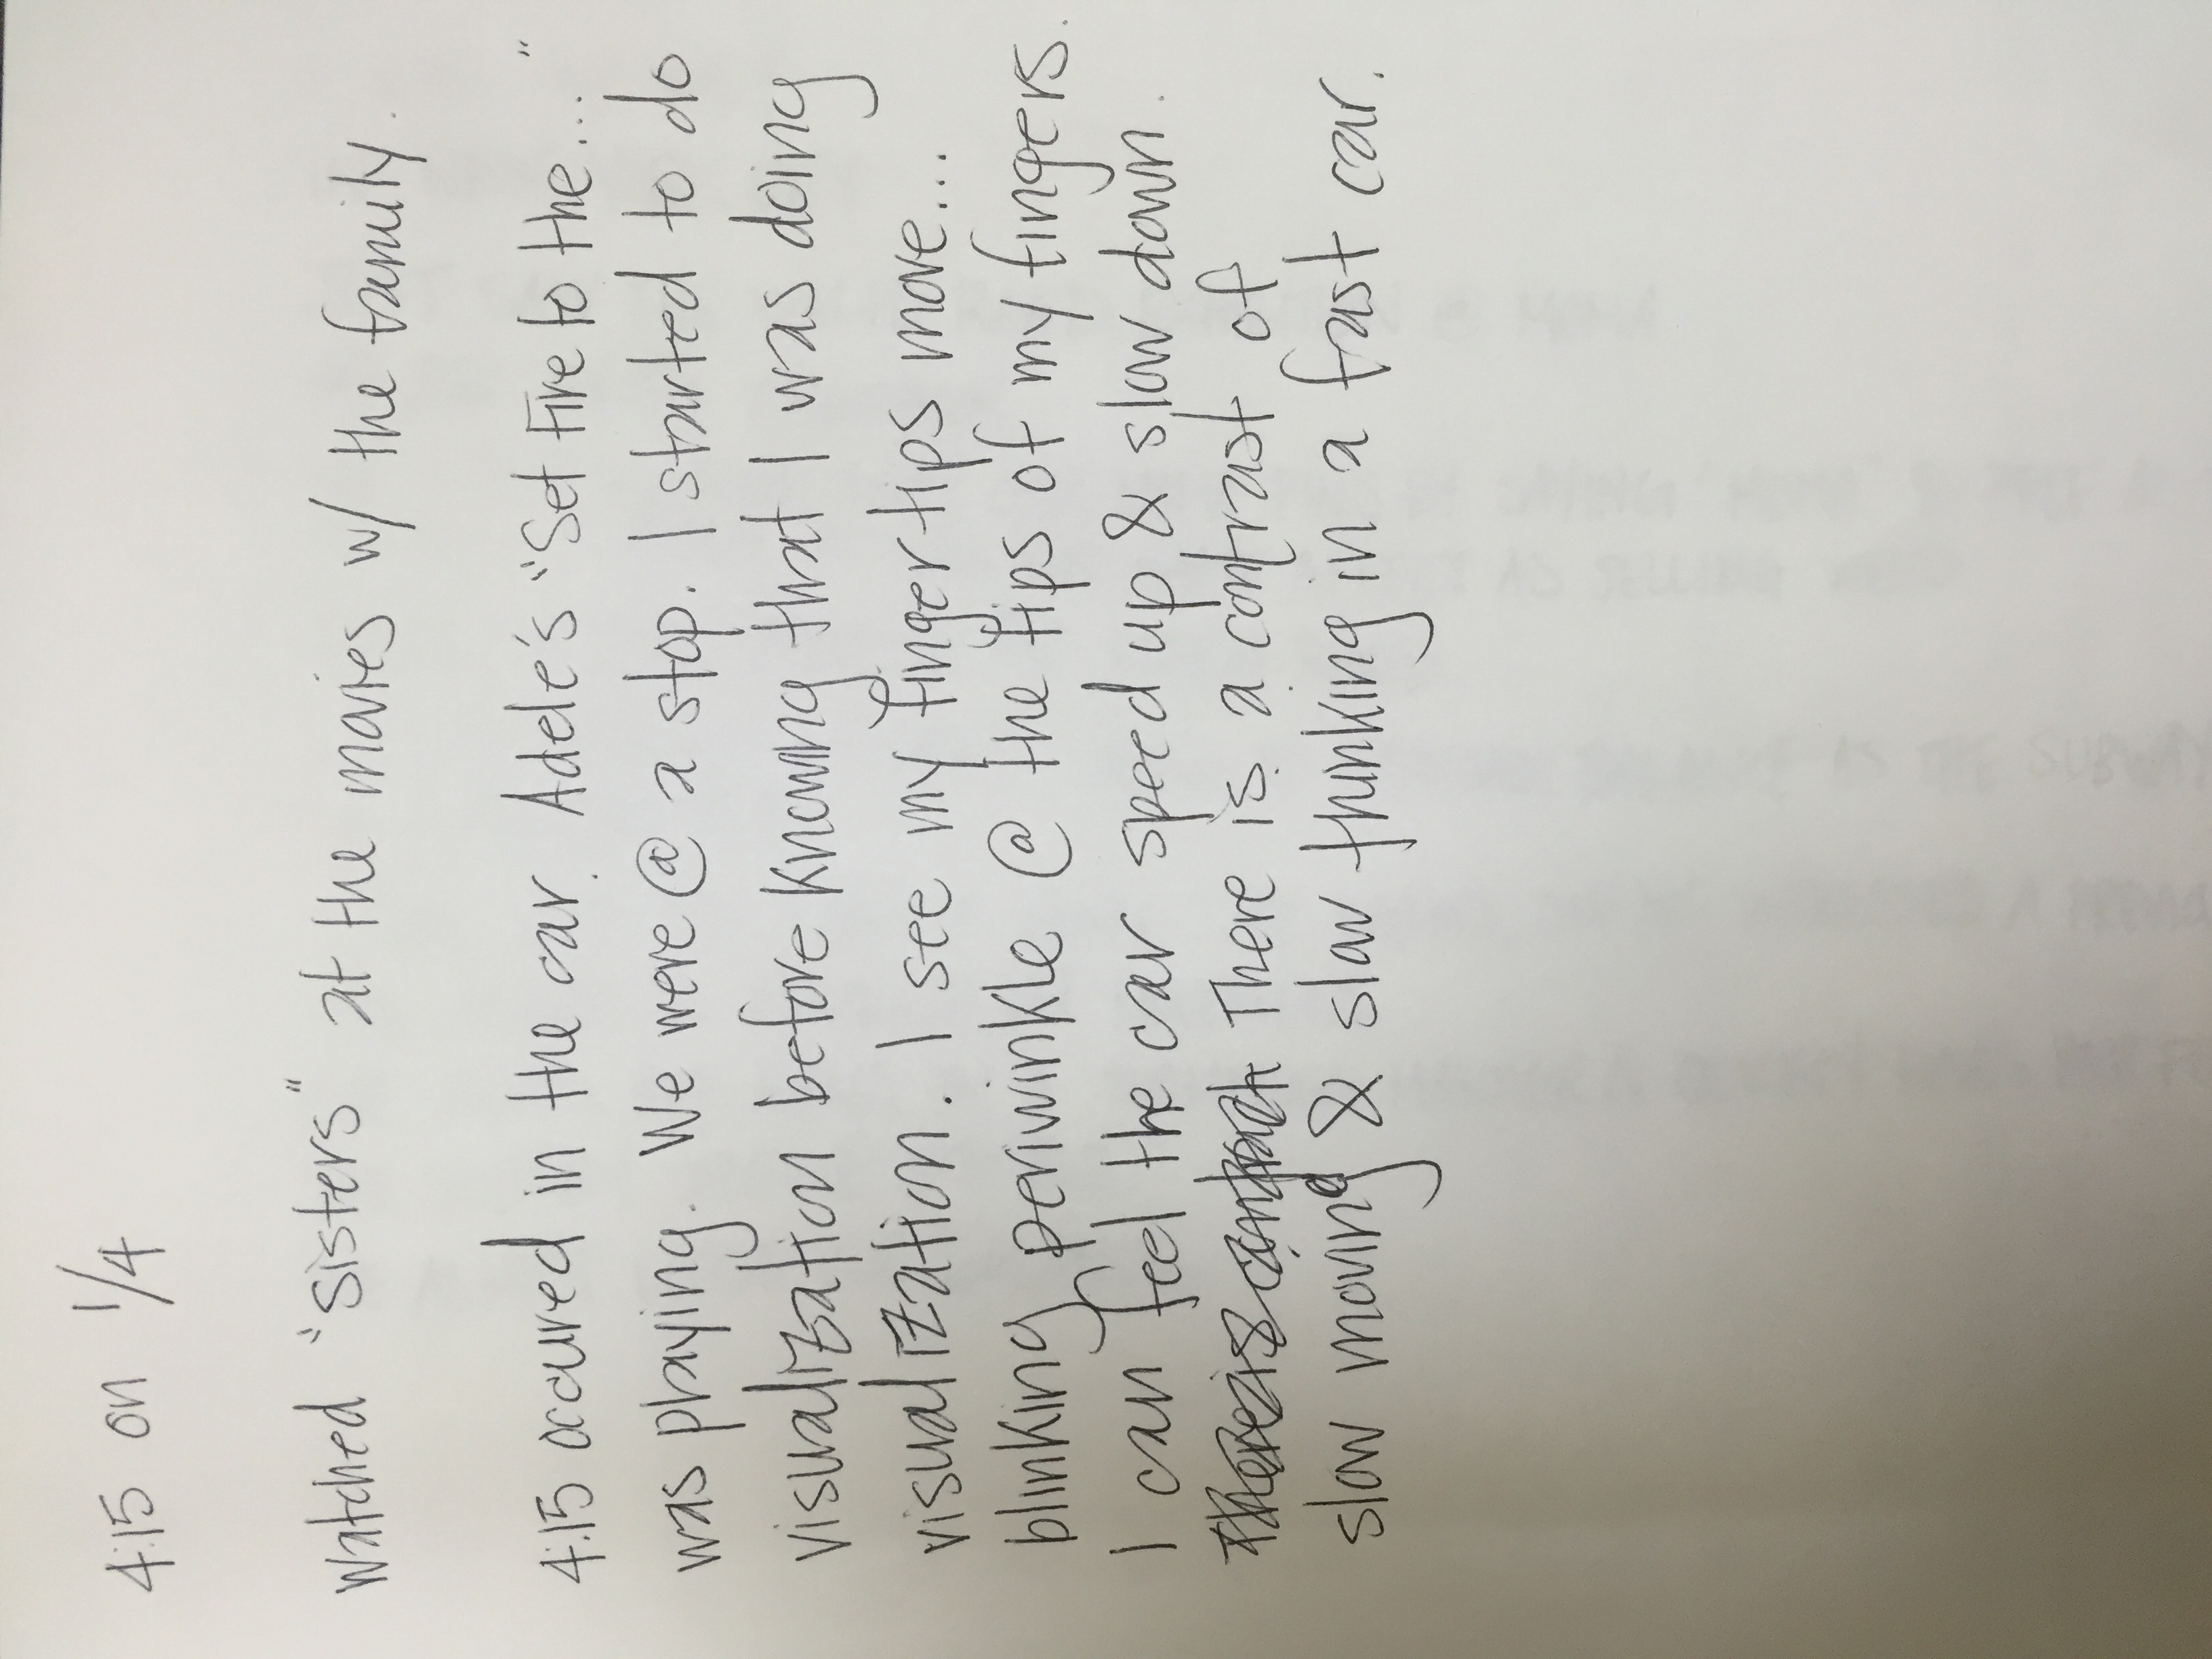 4:15 on 1/4
watched "sisters" at the movies w/ the family.
4:15 occured in the car. Adele's "Set Fire to the..."
was playing. We were @ a stop. I started to do
visualization before knowing that I was doing
visualization. I see my fingertips move....
blinking periwinkle @ the tips of my fingers.
I can feel the car speed up & slow down.
There is a contrast of
slow moving & slow thinking in a fast car.